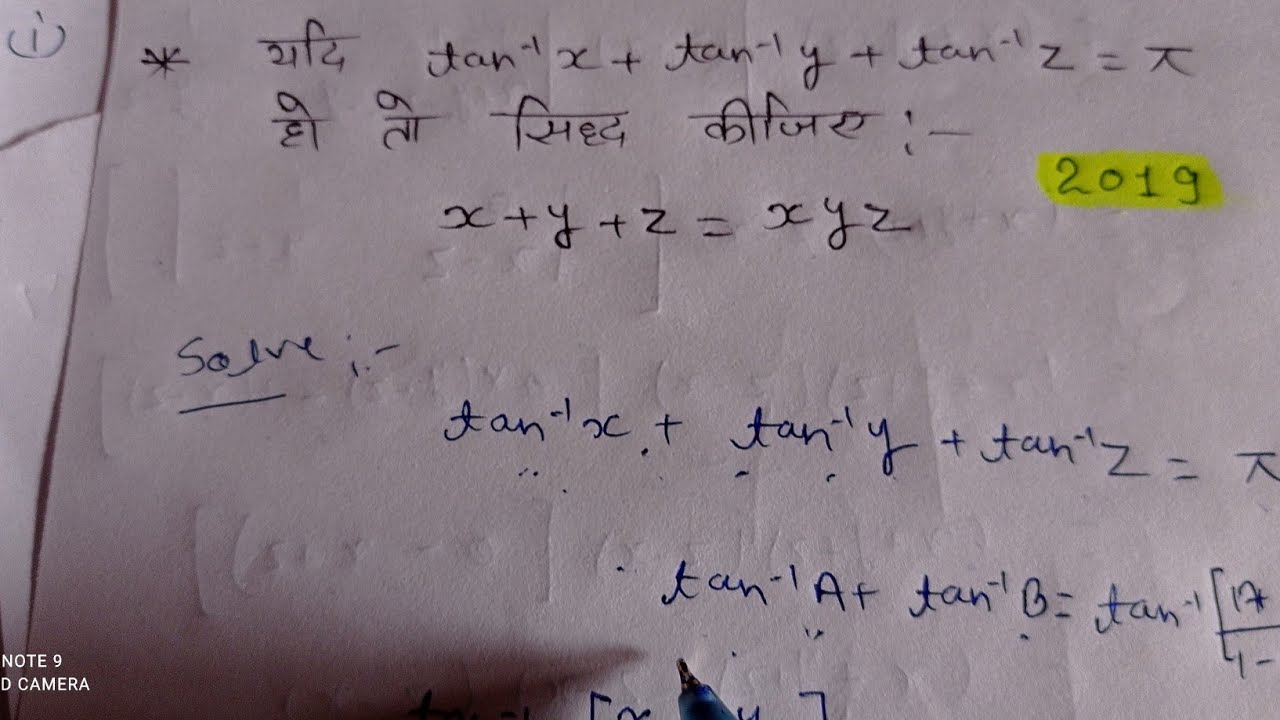 (i)
* यदि tan⁻¹ x + tan⁻¹ y + tan⁻¹ z = π
हो तो सिध्द कीजिए :-
2019
x + y + z = x y z
Solve :-
tan⁻¹ x + tan⁻¹ y + tan⁻¹ z = π
tan⁻¹ A + tan⁻¹ B = tan⁻¹ [A+
1-
NOTE 9
D CAMERA
[x y]